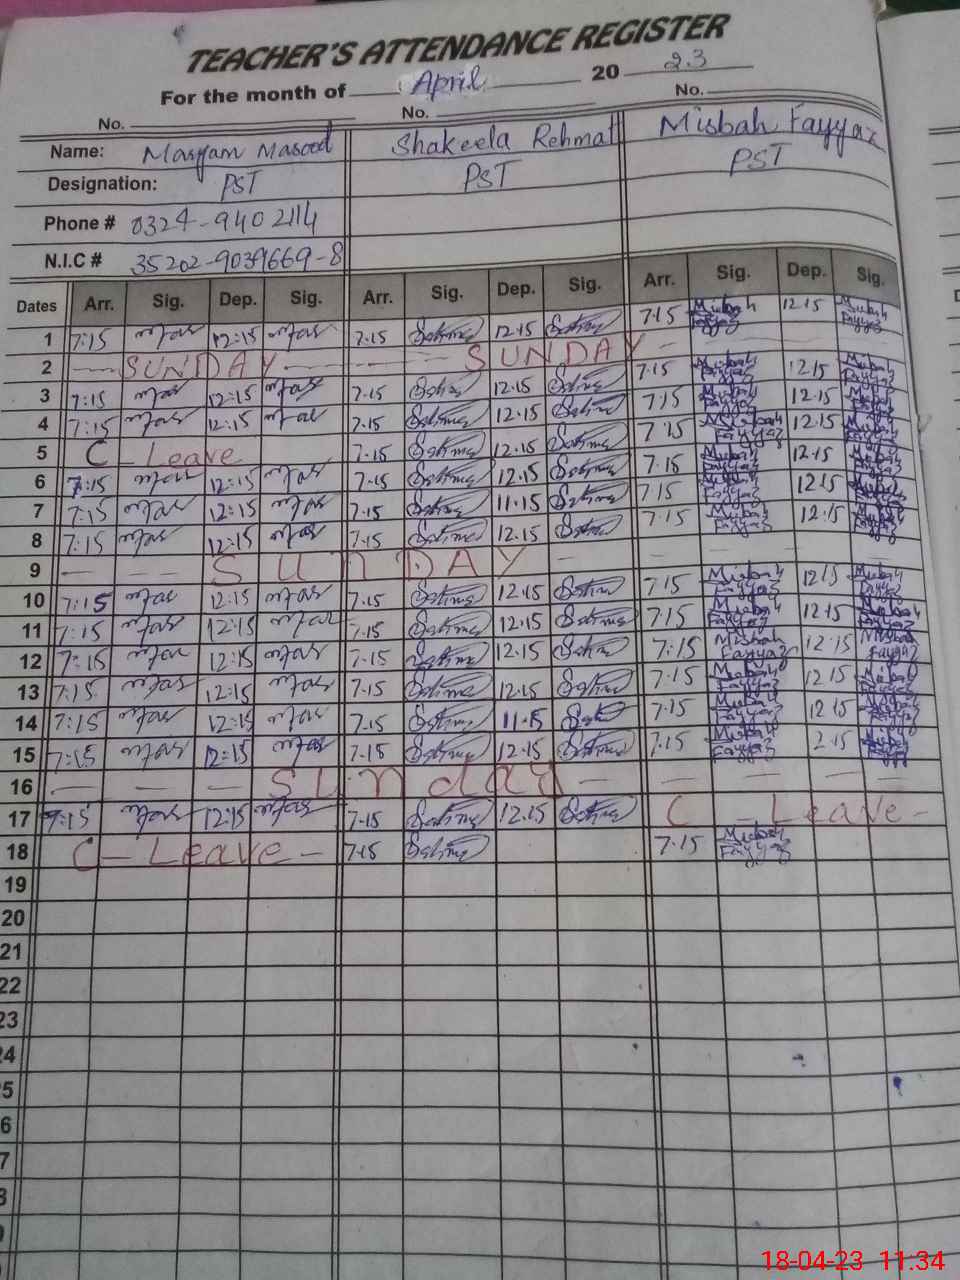 TEACHER'S ATTENDANCE REGISTER
For the month of April 20 23
No. No. No.
Name: Maryam Masood Shakeela Rehmat Misbah Fayyaz
Designation: PST PST PST
Phone # 0324-9402114
N.I.C # 35202-9039669-8
Dates Arr. Sig. Dep. Sig. Arr. Sig. Dep. Sig. Arr. Sig. Dep. Sig.
1 7:15 12:15 7.15 12.15 7.15 Misbah Fayyaz 12.15 Misbah Fayyaz
2 SUNDAY SUNDAY
3 7:15 12:15 7.15 12.15 7.15 Misbah Fayyaz 12.15 Misbah Fayyaz
4 7:15 12:15 7.15 12.15 7.15 Misbah Fayyaz 12.15 Misbah Fayyaz
5 C - Leave 7.15 12.15 7.15 Misbah Fayyaz 12.15 Misbah Fayyaz
6 7:15 12:15 7.15 12.15 7.15 Misbah Fayyaz 12.15 Misbah Fayyaz
7 7:15 12:15 7.15 11.15 7.15 Misbah Fayyaz 12.15 Misbah Fayyaz
8 7:15 12:15 7.15 12.15 7.15 Misbah Fayyaz 12:15 Misbah Fayyaz
9 SUnDAY
10 7:15 12:15 7.15 12.15 7.15 Misbah Fayyaz 12.15 Misbah Fayyaz
11 7:15 12:15 7.15 12.15 7.15 Misbah Fayyaz 12.15 Misbah Fayyaz
12 7:15 12:15 7.15 12.15 7.15 Misbah Fayyaz 12.15 Misbah Fayyaz
13 7:15 12:15 7.15 12.15 7.15 Misbah Fayyaz 12.15 Misbah Fayyaz
14 7:15 12:15 7.15 11.15 7.15 Misbah Fayyaz 12.15 Misbah Fayyaz
15 7:15 12:15 7.15 12.15 7.15 Misbah Fayyaz 2.15 Misbah Fayyaz
16 SUnday
17 7:15 12:15 7.15 12.15 C - Leave -
18 C - Leave - 7.15 7.15 Misbah Fayyaz
19
20
21
22
23
24
5
6
7
8
18-04-23 11:34